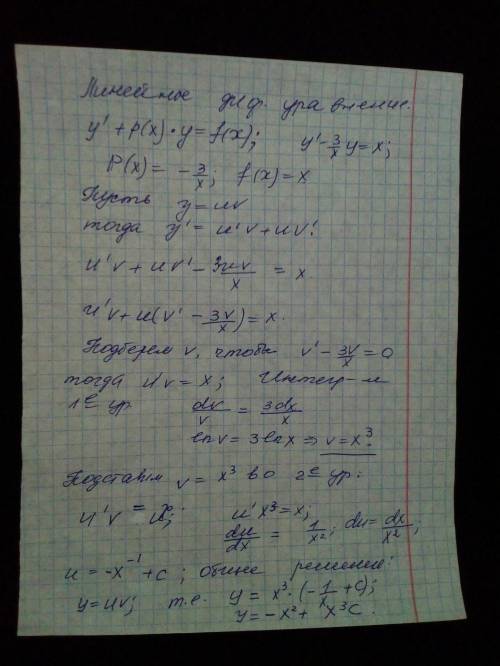 Линейное диф. уравнение.
y' + p(x)·y = f(x); y' - 3/x y = x;
P(x) = - 3/x; f(x) = x
Пусть y = uv
тогда y' = u'v + uv'.
u'v + uv' - 3uv/x = x
u'v + u(v' - 3v/x) = x.
Подберем v, чтобы v' - 3v/x = 0
тогда u'v = x; Интегр-м
1е ур dv/v = 3dx/x
ln v = 3 ln x ⇒ v = x³.
Подставим v = x³ во 2е ур:
u'v = x; u'x³ = x;
du/dx = 1/x²; du = dx/x²;
u = -x⁻¹ + c; общее решение:
y = uv; т.е. y = x³·(-1/x + c);
y = -x² + x³C.